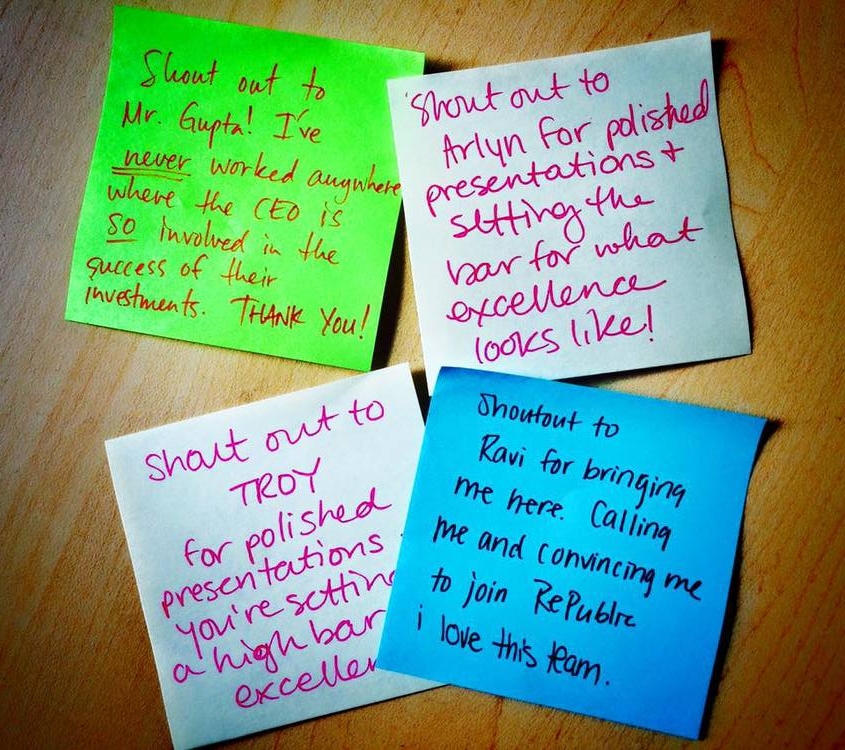 Shout out to
Mr. Gupta! I've
never worked anywhere
where the CEO is
so involved in the
success of their
investments. THANK YOU!
Shout out to
Arlyn for polished
presentations +
setting the
bar for what
excellence
looks like!
Shout out to
TROY
for polished
presentations
you're setting
a high bar
excellen
Shoutout to
Ravi for bringing
me here. Calling
me and convincing me
to join RePublic
i love this team.